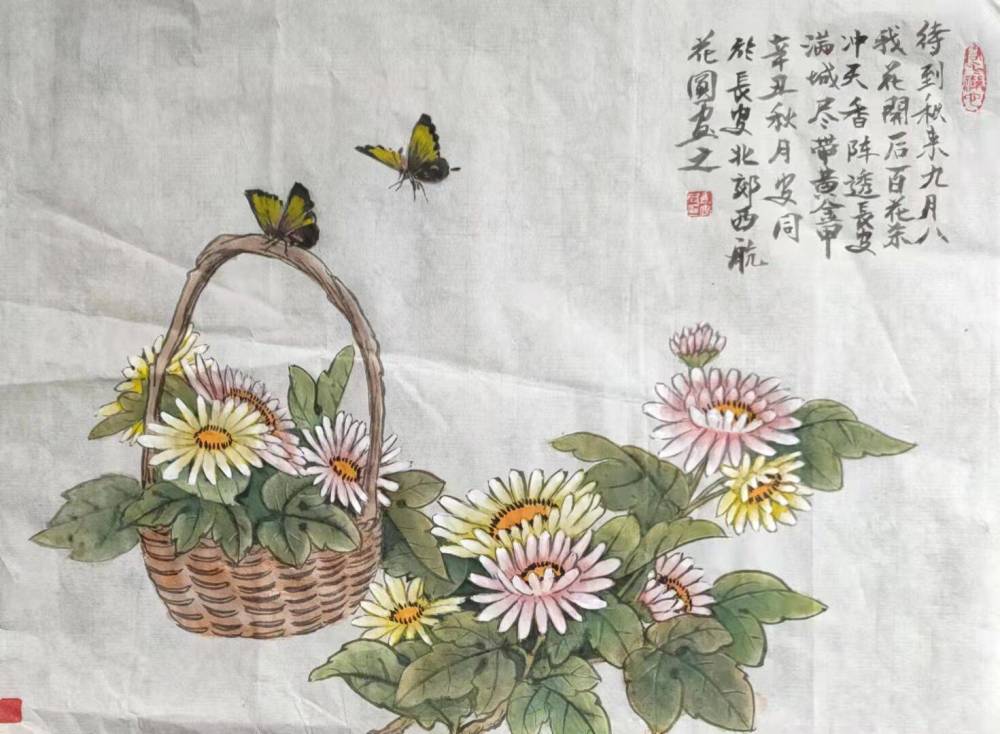 待到秋来九月八
我花開后百花杀
冲天香阵透長安
满城尽带黄金甲
辛丑秋月安同
於長安北郊西航
花園画之